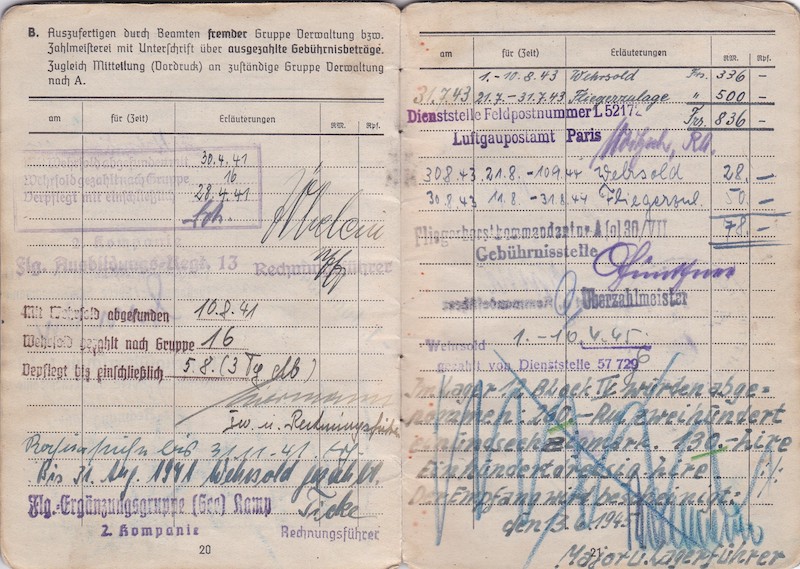 B. Auszufertigen durch Beamten fremder Gruppe Verwaltung bzw.
Zahlmeisterei mit Unterschrift über ausgezahlte Gebührnisbeträge.
Zugleich Mitteilung (Vordruck) an zuständige Gruppe Verwaltung
nach A.
am für (Zeit) Erläuterungen RM. Rpf.
30.4.41
Wehrsold gezahlt nach Gruppe 16
Verpflegt mit einschließlich 28.4.41
2. Kompanie
Flg. Ausbildungs-Regt. 13 Rechnungsführer
Mit Wehrsold abgefunden 10.8.41
Wehrsold gezahlt nach Gruppe 16
Verpflegt bis einschließlich 5.8. (3 Tg
Bis 31. Aug. 1941 Wehrsold gezahlt.
Flg.-Ergänzungsgruppe (See) Kamp
2. Kompanie Rechnungsführer
20
am für (Zeit) Erläuterungen RM. Rpf.
1. - 10.8.43 Wehrsold Frs. 336 -
31.7.43 21.7. - 31.7.43 Fliegerzulage " 500 -
Dienststelle Feldpostnummer L 52172 Frs. 836 -
Luftgaupostamt Paris
30.8.43 21.8. - 10.9.44 Wehrsold 28. -
30.8.43 11.8. - 31.8.44 Fliegerzul. 50. -
78 -
Fliegerhorstkommandantur A 30/VII
Gebührnisstelle
Überzahlmeister
Wehrsold 1. - 10.4.45.
gezahlt von Dienststelle 57 729
Im Lager Abgel IV wurden abge-
nommen: zweihundert
130.- lire
Einhundertdreissig lire
Der Empfang wird bescheinigt:
den 13.6.1945
21
Major u. Lagerführer